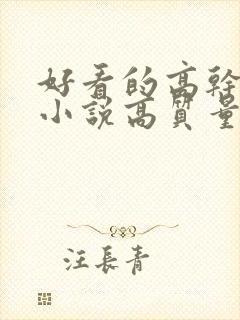 好看的高幹
小說高質量
汪長青